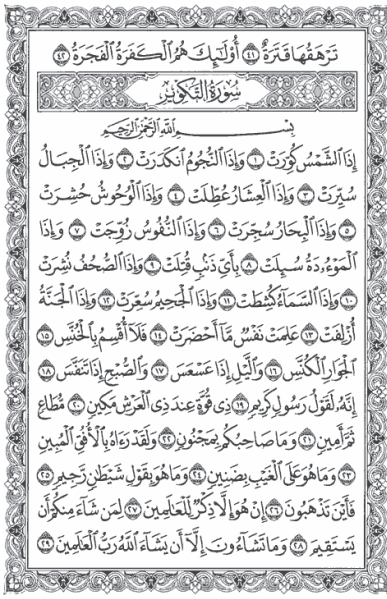 تَرْهَقُهَا قَتَرَةٌ ٤١ أُولَٰئِكَ هُمُ الْكَفَرَةُ الْفَجَرَةُ ٤٢
سُورَةُ التَّكْوِيرِ
بِسْمِ اللَّهِ الرَّحْمَٰنِ الرَّحِيمِ
إِذَا الشَّمْسُ كُوِّرَتْ ١ وَإِذَا النُّجُومُ انكَدَرَتْ ٢ وَإِذَا الْجِبَالُ
سُيِّرَتْ ٣ وَإِذَا الْعِشَارُ عُطِّلَتْ ٤ وَإِذَا الْوُحُوشُ حُشِرَتْ
٥ وَإِذَا الْبِحَارُ سُجِّرَتْ ٦ وَإِذَا النُّفُوسُ زُوِّجَتْ ٧ وَإِذَا
الْمَوْءُدَةُ سُئِلَتْ ٨ بِأَيِّ ذَنبٍ قُتِلَتْ ٩ وَإِذَا الصُّحُفُ نُشِرَتْ
١٠ وَإِذَا السَّمَاءُ كُشِطَتْ ١١ وَإِذَا الْجَحِيمُ سُعِّرَتْ ١٢ وَإِذَا الْجَنَّةُ
أُزْلِفَتْ ١٣ عَلِمَتْ نَفْسٌ مَّا أَحْضَرَتْ ١٤ فَلَا أُقْسِمُ بِالْخُنَّسِ ١٥
الْجَوَارِ الْكُنَّسِ ١٦ وَاللَّيْلِ إِذَا عَسْعَسَ ١٧ وَالصُّبْحِ إِذَا تَنَفَّسَ ١٨
إِنَّهُ لَقَوْلُ رَسُولٍ كَرِيمٍ ١٩ ذِي قُوَّةٍ عِندَ ذِي الْعَرْشِ مَكِينٍ ٢٠ مُّطَاعٍ
ثَمَّ أَمِينٍ ٢١ وَمَا صَاحِبُكُم بِمَجْنُونٍ ٢٢ وَلَقَدْ رَءَاهُ بِالْأُفُقِ الْمُبِينِ
٢٣ وَمَا هُوَ عَلَى الْغَيْبِ بِضَنِينٍ ٢٤ وَمَا هُوَ بِقَوْلِ شَيْطَانٍ رَّجِيمٍ ٢٥
فَأَيْنَ تَذْهَبُونَ ٢٦ إِنْ هُوَ إِلَّا ذِكْرٌ لِّلْعَالَمِينَ ٢٧ لِمَن شَاءَ مِنكُمْ أَن
يَسْتَقِيمَ ٢٨ وَمَا تَشَاءُونَ إِلَّا أَن يَشَاءَ اللَّهُ رَبُّ الْعَالَمِينَ ٢٩